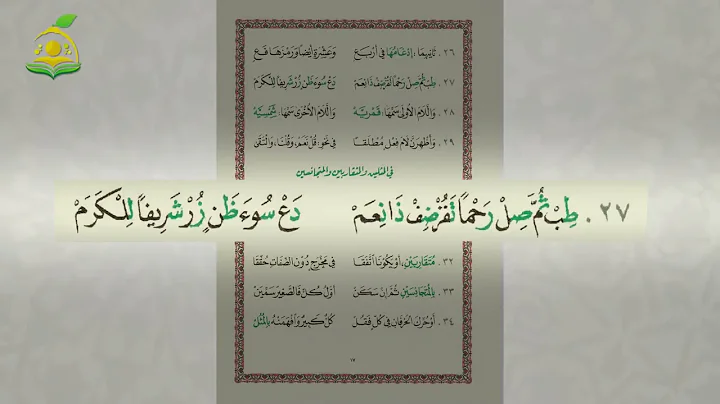 ٢٦ . ثَانِيهِمَا ، إِدْغَامُهَا فِي أَرْبَعِ وَعَشْرَةٍ أَيْضًا وَرَمْزَهَا فَعِ
٢٧ . طِبْ ثُمَّ صِلْ رَحْمًا تَفُزْ ضِفْ ذَا نِعَمْ دَعْ سُوءَ ظَنٍ زُرْ شَرِيفًا لِلْكَرَمْ
٢٨ . وَاللَّامُ الْأُولَى سَمِّهَا : قَمْرِيَّهْ وَاللَّامُ الْأُخْرَى سَمِّهَا : شَمْسِيَّهْ
٢٩ . وَأَظْهِرَنَّ لَامَ فِعْلٍ مُطْلَقَا فِي نَحْوِ : قُلْ نَعَمْ ، وَقُلْنَا ، وَالْتَقَى
فِي المثلين والمتقاربين والمتجانسين
٢٧ . طِبْ ثُمَّ صِلْ رَحْمًا تَفُزْ ضِفْ ذَا نِعَمْ دَعْ سُوءَ ظَنٍ زُرْ شَرِيفًا لِلْكَرَمْ
٣٢ . مُتَقَارِبَيْنِ ، أَوْ يَكُونَا اتَّفَقَا فِي مَخْرَجٍ دُونَ الصِّفَاتِ حُقِّقَا
٣٣ . بِالْمُتَجَانِسَيْنِ ثُمَّ إِنْ سَكَنْ أَوَّلُ كُلٍّ فَالصَّغِيرَ سَمِّيَنْ
٣٤ . أَوْ حُرِّكَ الْحَرْفَانِ فِي كُلٍّ فَقُلْ كُلٌّ كَبِيرٌ وَافْهَمَنْهُ بِالْمُثُلْ
١٧